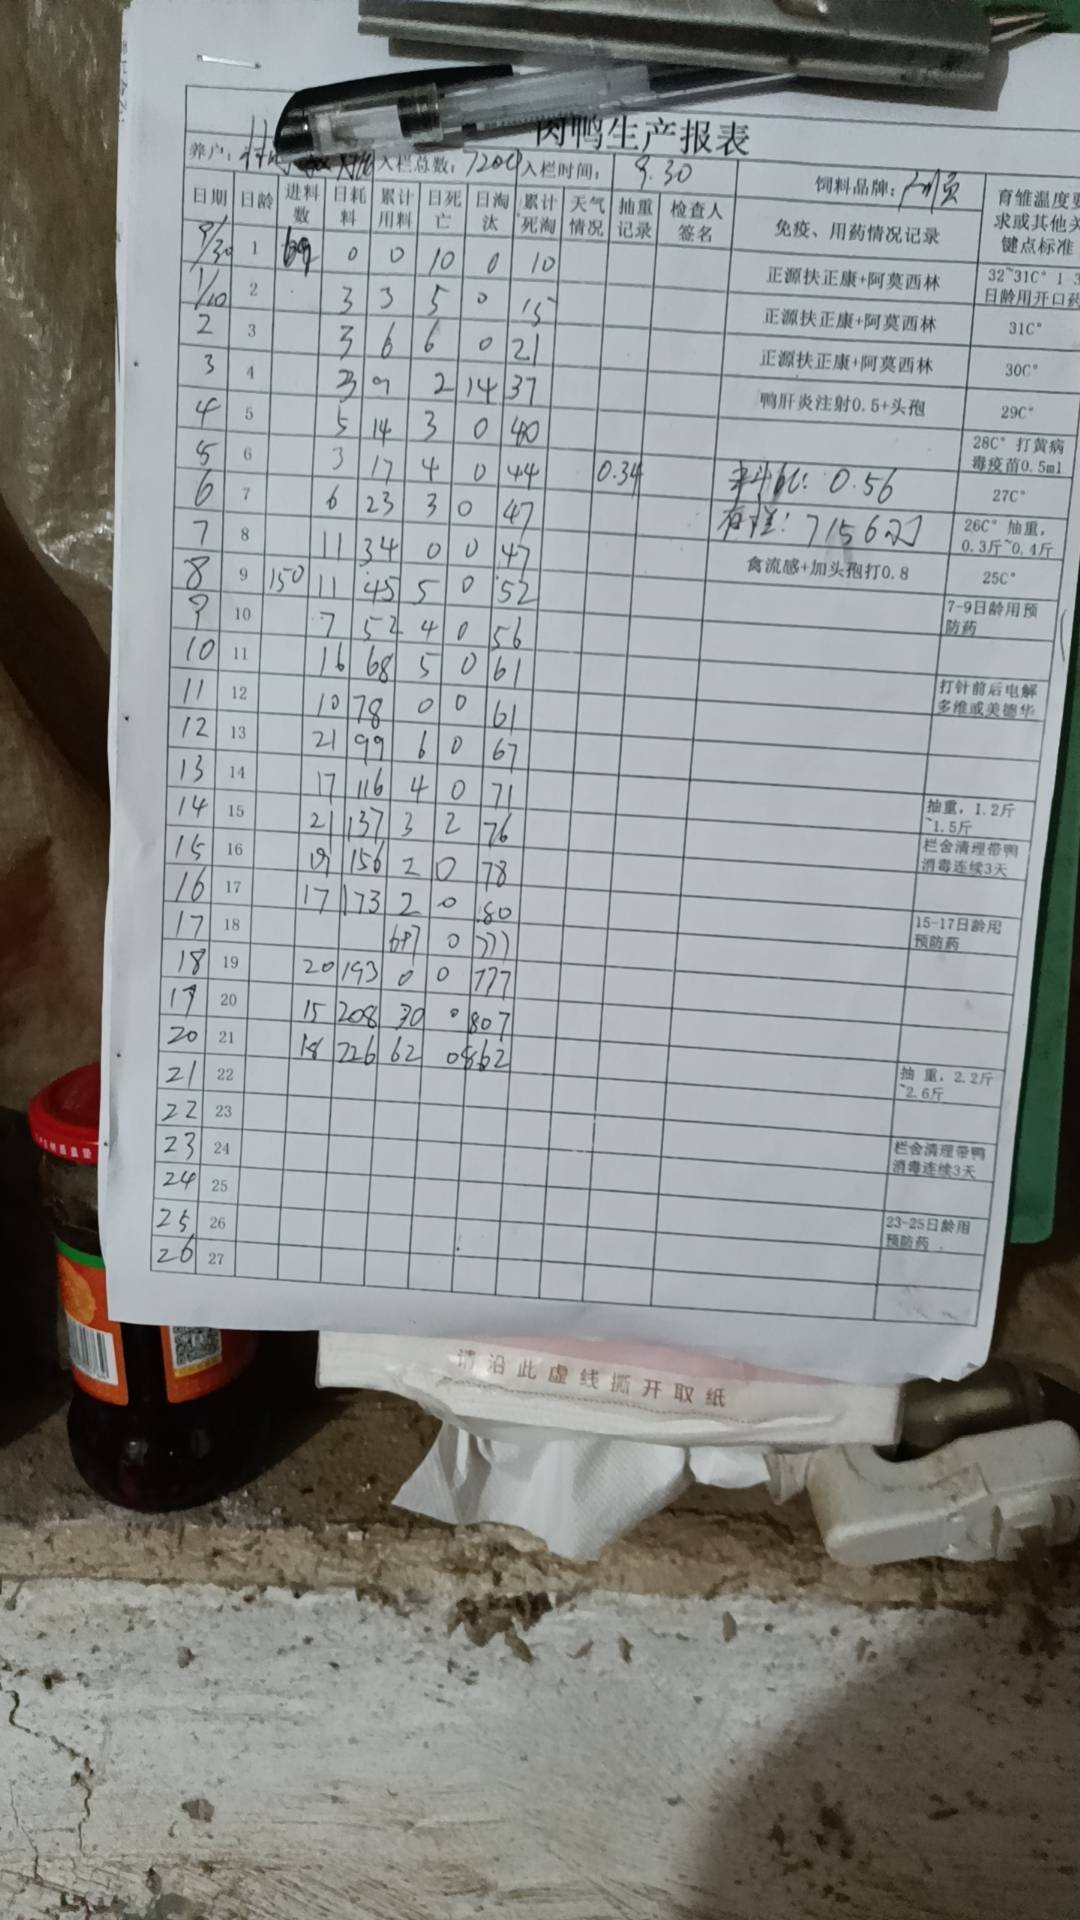 肉鸭生产报表
养户： 入栏总数：7204 入栏时间： 9.30 饲料品牌： 育雏温度要求或其他关键点标准
日期 日龄 进料数 日耗料 累计用料 日死亡 日淘汰 累计死淘 天气情况 抽重记录 检查人签名 免疫、用药情况记录
9/30 1 0 0 10 0 10 正源扶正康+阿莫西林 32~31C° 1-3日龄用开口药
1/10 2 3 3 5 0 15 正源扶正康+阿莫西林 31C°
2 3 3 6 6 0 21 正源扶正康+阿莫西林 30C°
3 4 3 9 2 14 37 鸭肝炎注射0.5+头孢 29C°
4 5 5 14 3 0 40 28C° 打黄病毒疫苗0.5ml
5 6 3 17 4 0 44 0.34 料比：0.56 27C°
6 7 6 23 3 0 47 存栏：7156 26C° 抽重，0.3斤~0.4斤
7 8 11 34 0 0 47 禽流感+加头孢打0.8 25C°
8 9 150 11 45 5 0 52 7-9日龄用预防药
9 10 7 52 4 0 56
10 11 16 68 5 0 61 打针前后电解多维或美德华
11 12 10 78 0 0 61
12 13 21 99 6 0 67
13 14 17 116 4 0 71 抽重，1.2斤~1.5斤
14 15 21 137 3 2 76 栏舍清理带鸭消毒连续3天
15 16 19 156 2 0 78
16 17 17 173 2 0 80 15-17日龄用预防药
17 18 697 0 777
18 19 20 193 0 0 777
19 20 15 208 30 0 807
20 21 18 226 62 0 862 抽 重，2.2斤~2.6斤
21 22
22 23 栏舍清理带鸭消毒连续3天
23 24
24 25 23-25日龄用预防药
25 26
26 27
请沿此虚线撕开取纸